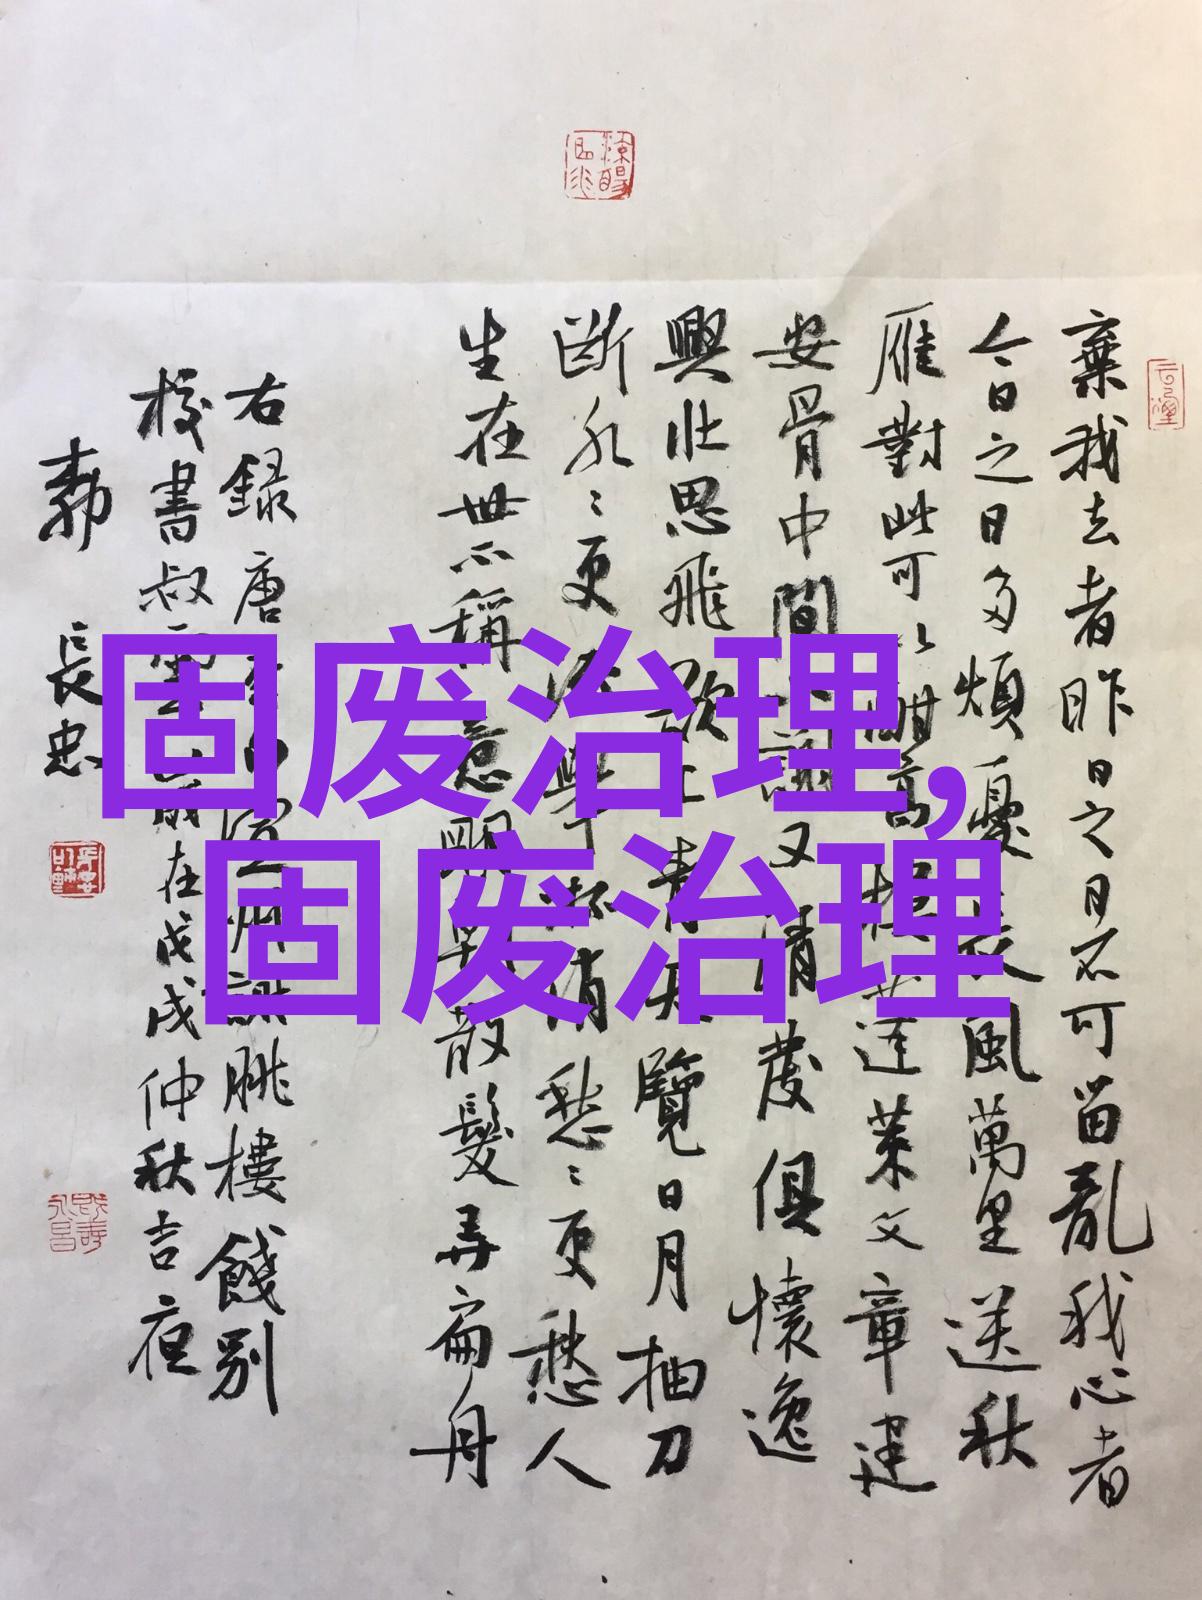 棄我去者昨日之日不可留亂我心者
今日之日多煩憂長風萬里送秋
雁對此可以酣高樓蓬萊文章建
安骨中間小謝又清發俱懷逸
興壯思飛欲上青天覽日月抽刀
斷水〻更流舉杯消愁〻更愁人
生在世不稱意明朝散髮弄扁舟
右録唐李白宣州謝朓樓餞別
校書叔雲歲在戊戌仲秋吉夜
長忠
固废治理,
固废治理